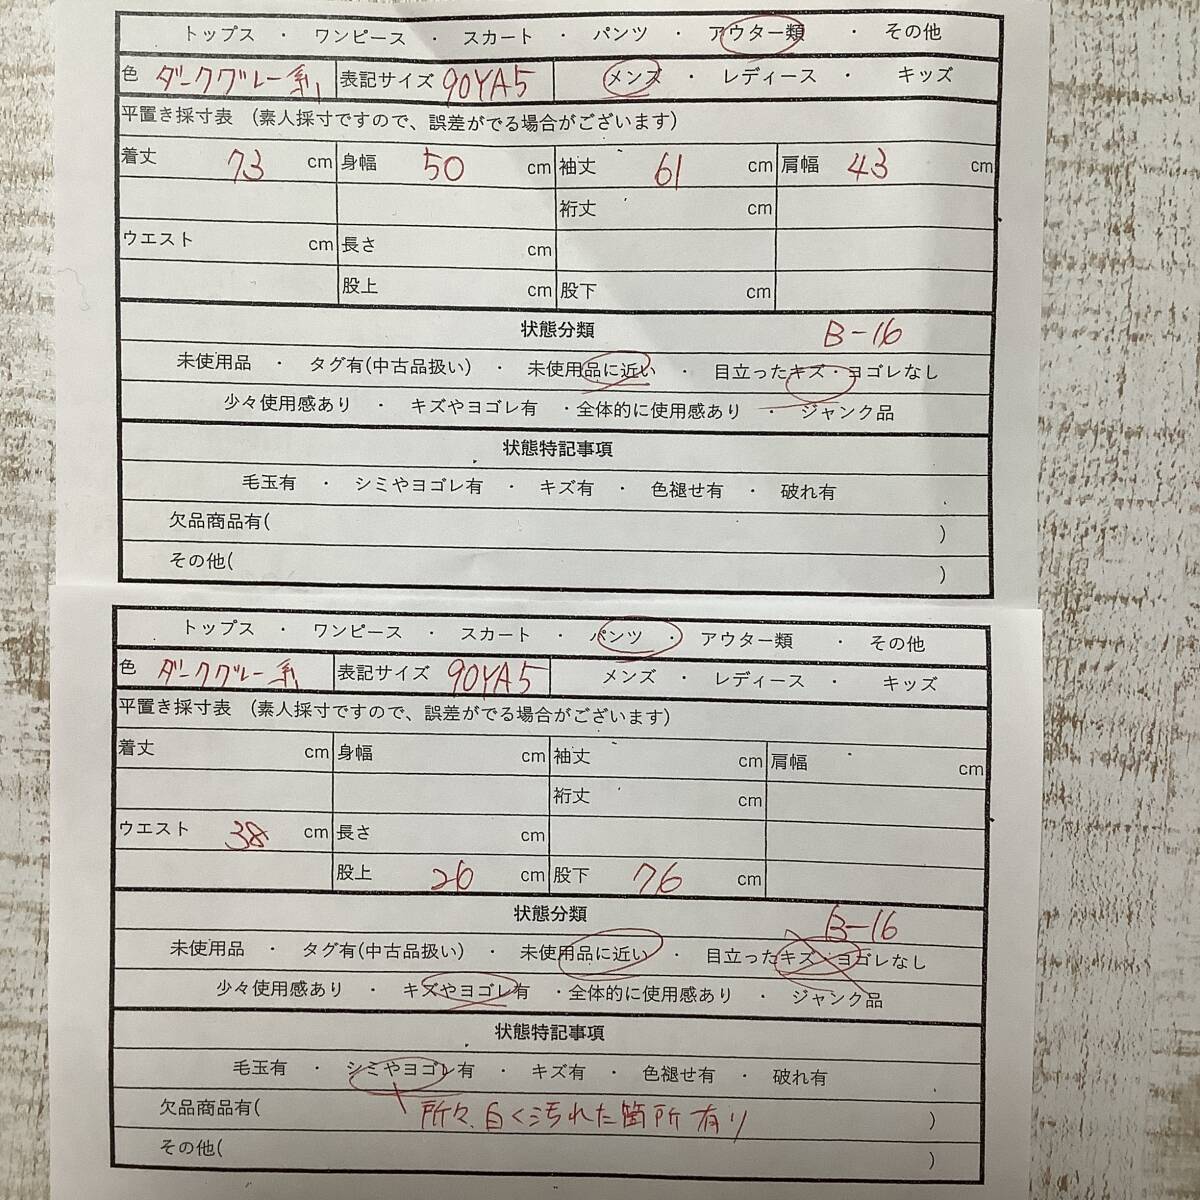 トップス ・ ワンピース ・ スカート ・ パンツ ・ アウター類 ・ その他
色 ダークグレー系 表記サイズ 90YA5 メンズ ・ レディース ・ キッズ
平置き採寸表 (素人採寸ですので、誤差がでる場合がございます)
着丈 73 cm 身幅 50 cm 袖丈 61 cm 肩幅 43 cm
裄丈 cm
ウエスト cm 長さ cm
股上 cm 股下 cm
状態分類 B-16
未使用品 ・ タグ有(中古品扱い) ・ 未使用品に近い ・ 目立ったキズ・ヨゴレなし
少々使用感あり ・ キズやヨゴレ有 ・全体的に使用感あり ・ ジャンク品
状態特記事項
毛玉有 ・ シミやヨゴレ有 ・ キズ有 ・ 色褪せ有 ・ 破れ有
欠品商品有( )
その他( )
トップス ・ ワンピース ・ スカート ・ パンツ ・ アウター類 ・ その他
色 ダークグレー系 表記サイズ 90YA5 メンズ ・ レディース ・ キッズ
平置き採寸表 (素人採寸ですので、誤差がでる場合がございます)
着丈 cm 身幅 cm 袖丈 cm 肩幅 cm
裄丈 cm
ウエスト 38 cm 長さ cm
股上 26 cm 股下 76 cm
状態分類 B-16
未使用品 ・ タグ有(中古品扱い) ・ 未使用品に近い ・ 目立ったキズ・ヨゴレなし
少々使用感あり ・ キズやヨゴレ有 ・全体的に使用感あり ・ ジャンク品
状態特記事項
毛玉有 ・ シミやヨゴレ有 ・ キズ有 ・ 色褪せ有 ・ 破れ有
欠品商品有( 所々、白く汚れた箇所有り )
その他( )